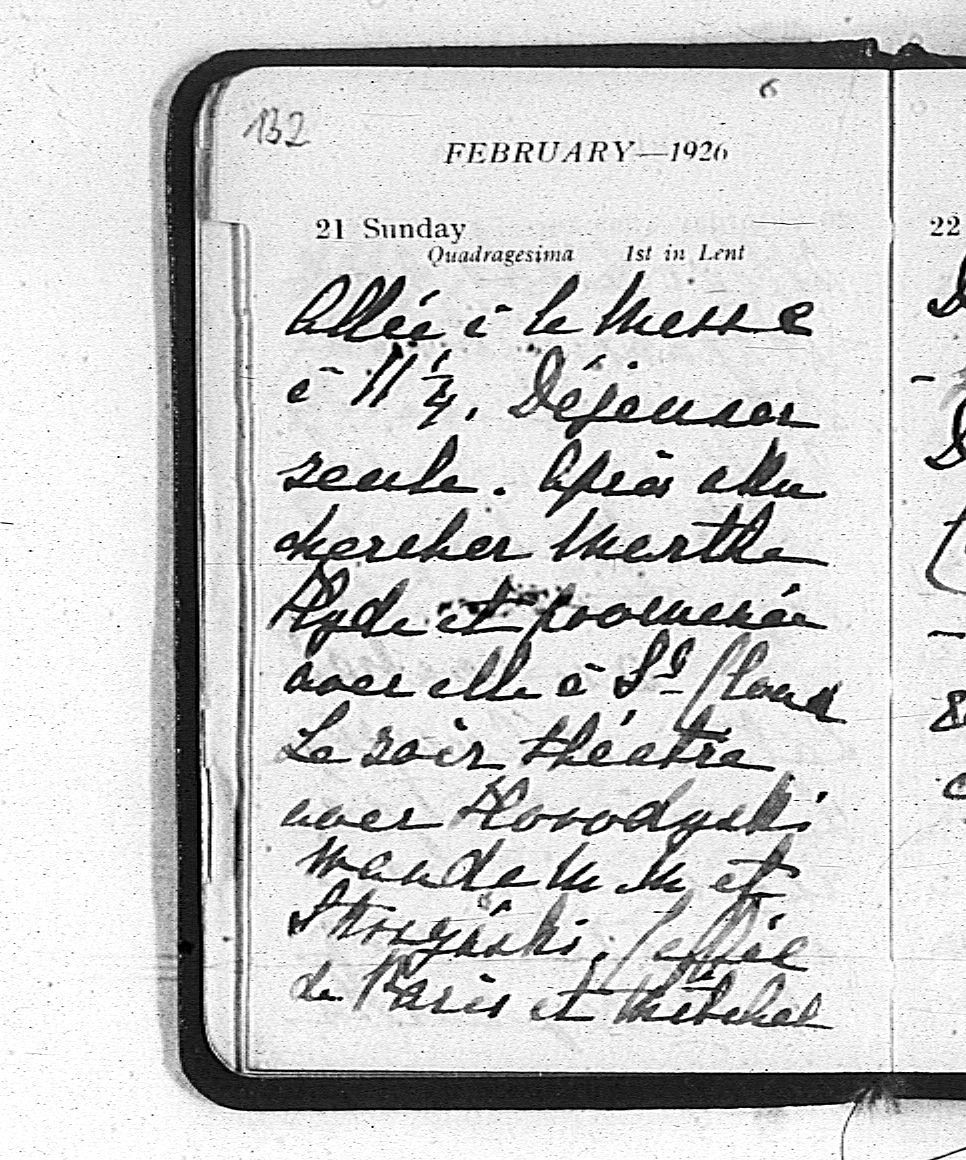 132
6
FEBRUARY—1926
21 Sunday
Quadragesima 1st in Lent
22
Allée à la Messe
à 11 1/4. Déjeuner
seule. Après allée
chercher Marthe
Hyde et promenée
avec elle à St Cloud
Le soir théatre
avec Horodyski
Wanda M M et
Skrzyński.
de Paris et Mitchel